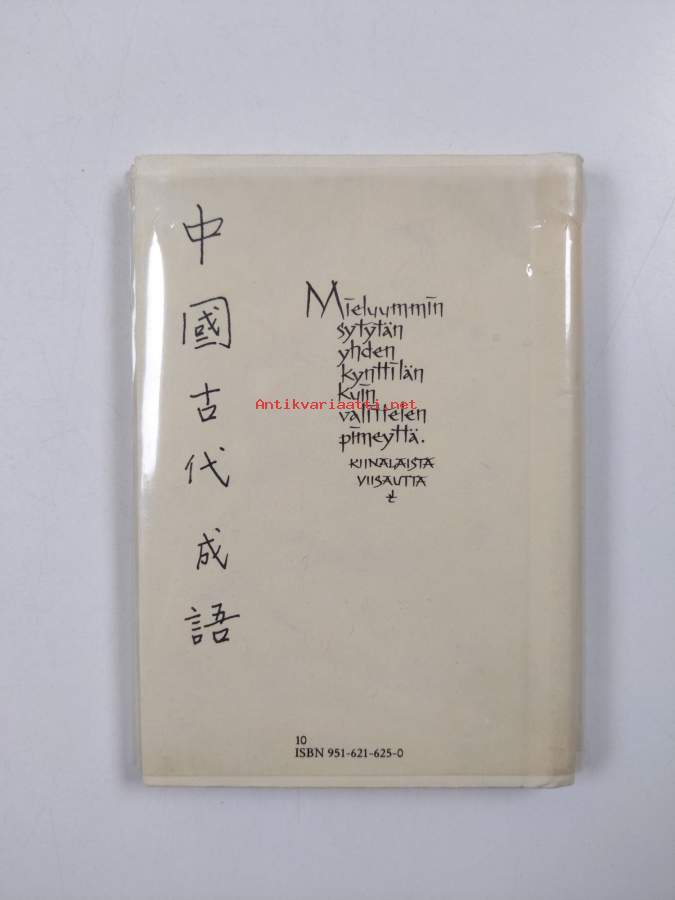 中國古代成語
Mieluummin
sytytän
yhden
kynttilän
kuin
valittelen
pimeyttä.
KIINALAISTA
VIISAUTTA
Antikvariaatti.net
10
ISBN 951-621-625-0